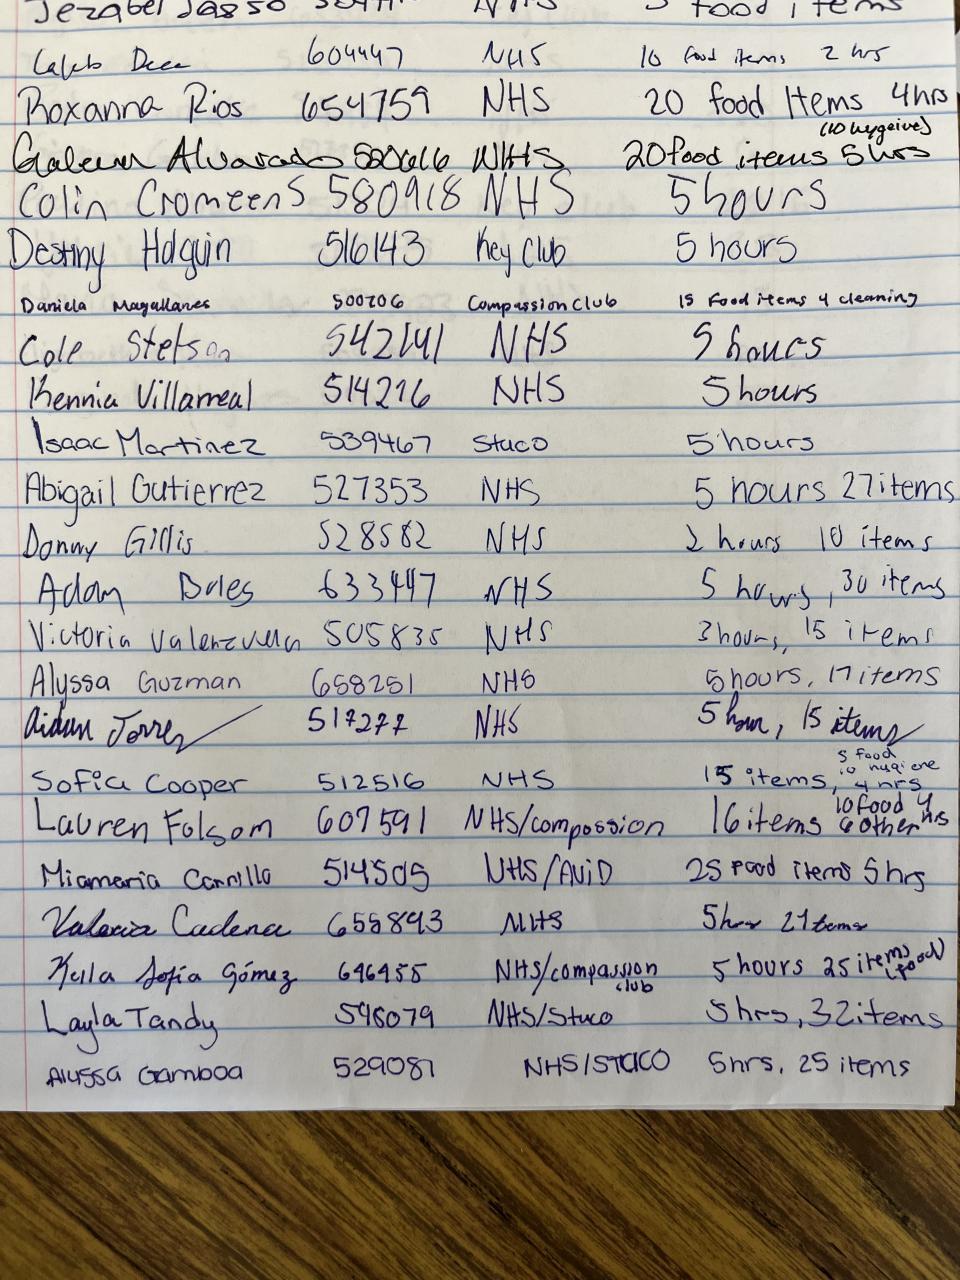 Jezabel Jasso NHS 5 food items
Caleb 604447 NHS 10 food items 2 hrs
Roxanna Rios 654759 NHS 20 food Items 4hrs
(10 hygeive)
Alvarado NHS 20 food items 5 hrs
Colin Cromeens 580918 NHS 5 hours
Destiny Holguin 516143 Key Club 5 hours
Daniela Magallanes 500706 Compassion Club 15 Food items 4 cleaning
Cole Stetson 542141 NHS 5 hours
Kennia Villarreal 514216 NHS 5 hours
Isaac Martinez 539467 Stuco 5 hours
Abigail Gutierrez 527353 NHS 5 hours 27items
Donny Gillis 528582 NHS 2 hours 10 items
Adam Boles 633447 NHS 5 hours, 30 items
Victoria Valenzuela 505835 NHS 3hours, 15 items
Alyssa Guzman 658251 NHS 5hours, 17items
Aidan Torrez 517277 NHS 5 hour, 15 items
5 food
10 hygiene
Sofia Cooper 512516 NHS 15 items, 4 hrs
10 food 4 hrs
Lauren Folsom 607591 NHS/compassion 16 items 6 other
Miamaria Carrillo 514505 NHS/AVID 25 Food items 5 hrs
Valeria Cadena 655893 NHS 5hrs
Keila Sofía Gómez 646455 NHS/compassion club 5 hours 25 items (food)
Layla Tandy 548079 NHS/Stuco 5hrs, 32items
Alyssa Gamboa 529081 NHS/STUCO 5hrs, 25 items